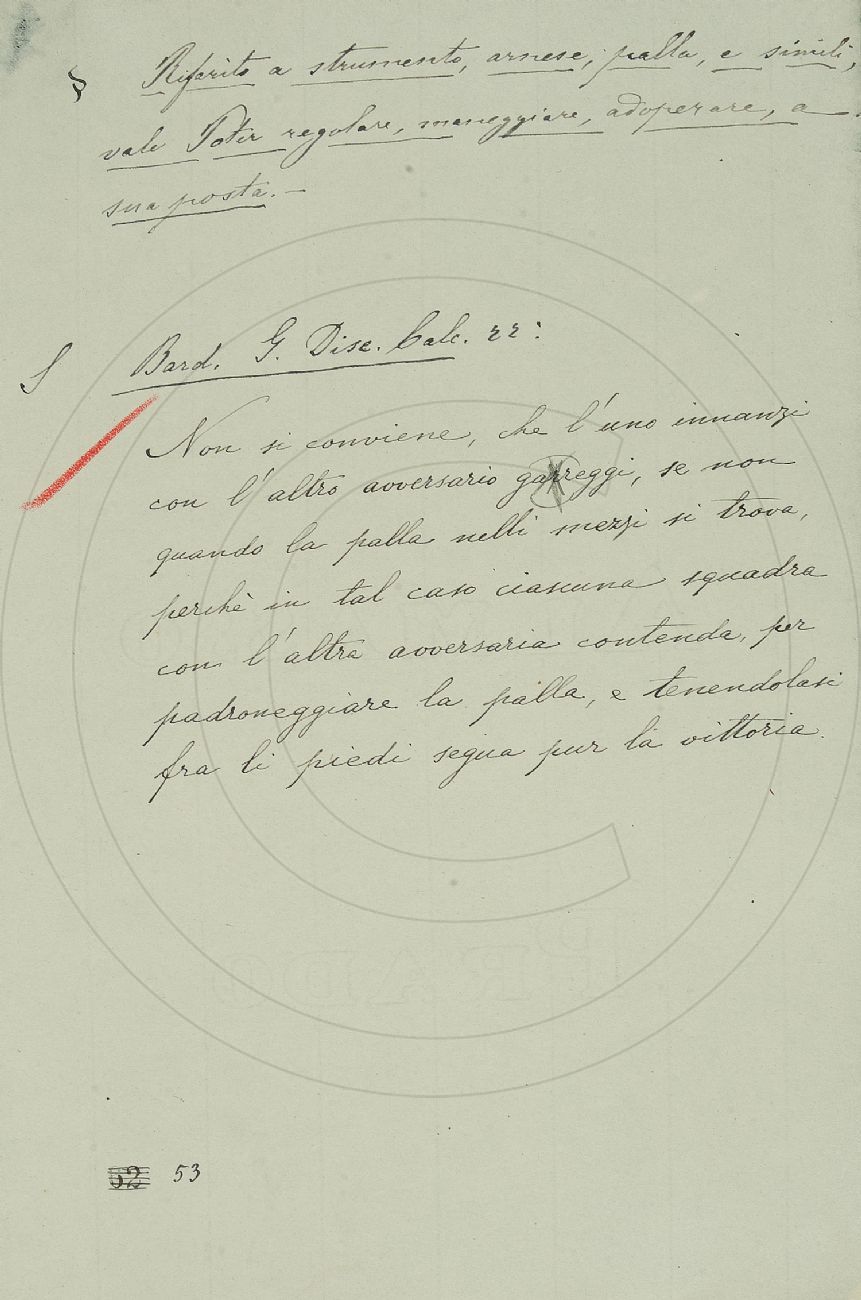 § Riferito a strumento, arnese, palla, e simili,
vale Poter regolare, maneggiare, adoperare, a
sua posta. –
S Bard. G. Disc. Calc. 22:
Non si conviene, che l'uno innanzi
con l'altro avversario gareggi, se non
quando la palla nelli mezzi si trova,
perchè in tal caso ciascuna squadra
con l'altra avversaria contenda, per
padroneggiare la palla, e tenendolasi
fra li piedi segua pur la vittoria.
52 53